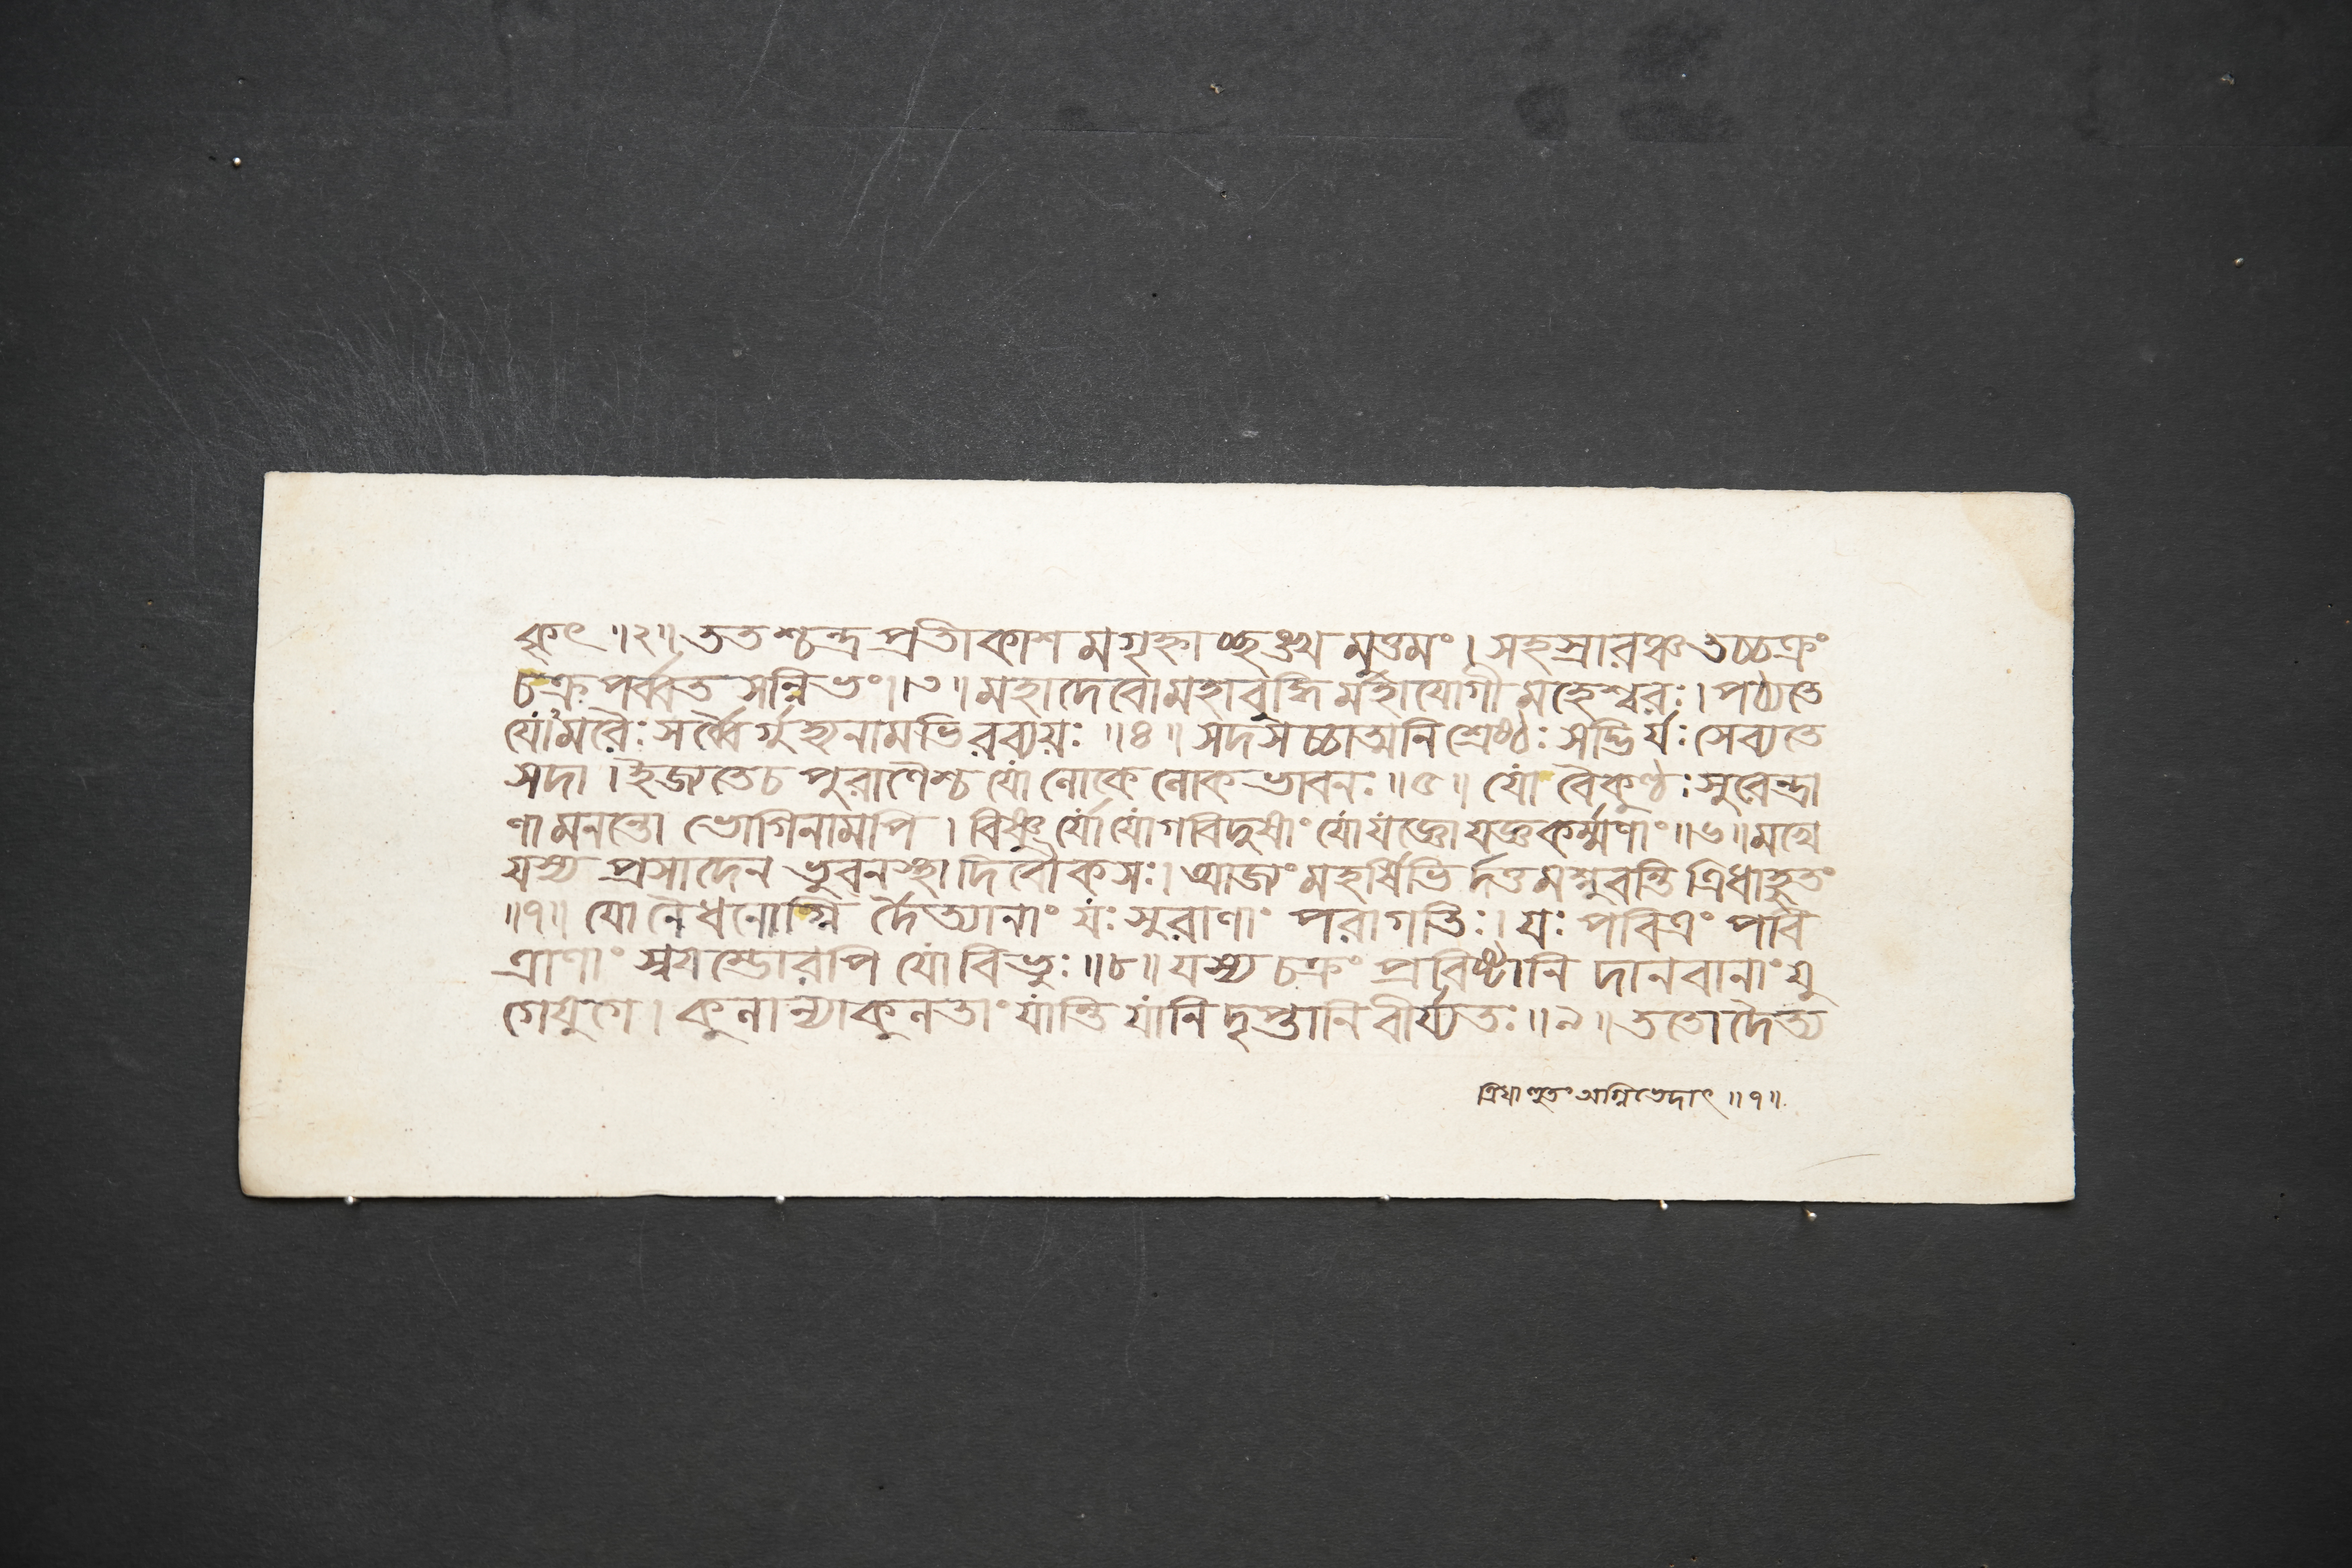 কৃৎ ॥২॥ ততশ্চন্দ্রপ্রতীকাশমগৃহ্ণাচ্ছঙ্খমুত্তমং । সহস্রারঞ্চ তচ্চক্রং
চক্রপর্ব্বতসন্নিভং ॥৩॥ মহাদেবো মহাবুদ্ধির্মহাযোগী মহেশ্বরঃ । পঠ্যতে
যোঽমরৈঃ সর্ব্বৈর্গুহ্যনামভিরব্যয়ঃ ॥৪॥ সদসচ্চাত্মনি শ্রেষ্ঠঃ সদ্ভির্যঃ সেব্যতে
সদা । ইজ্যতে চ পুরাণৈশ্চ যো লোকে লোকভাবনঃ ॥৫॥ যো বৈকুণ্ঠঃ সুরেন্দ্রা
ণামনন্তো ভোগিনামপি । বিষ্ণুর্যো যোগবিদুষাং যো যজ্ঞো যজ্ঞকর্ম্মণাং ॥৬॥ মখে
যস্য প্রসাদেন ভুবনস্থা দিবৌকসঃ । আজ্যং মহর্ষিভির্দত্তমশ্নুবন্তি ত্রিধাহুতং
॥৭॥ যো নৈধনোগ্নি র্দৈত্যানাং যঃ সুরাণাং পরা গতিঃ । যঃ পবিত্রং পবি
ত্রাণাং স্বয়ম্ভোরপি যো বিভুঃ ॥৮॥ যস্য চক্রং প্রবিষ্টানি দানবানাং যু
গে যুগে । কুলান্যাকুলতাং যান্তি যানি দৃপ্তানি বীর্য্যতঃ ॥৯॥ ততো দৈত্য
ত্রিধা হুতং অগ্নিভেদাৎ ॥৭॥